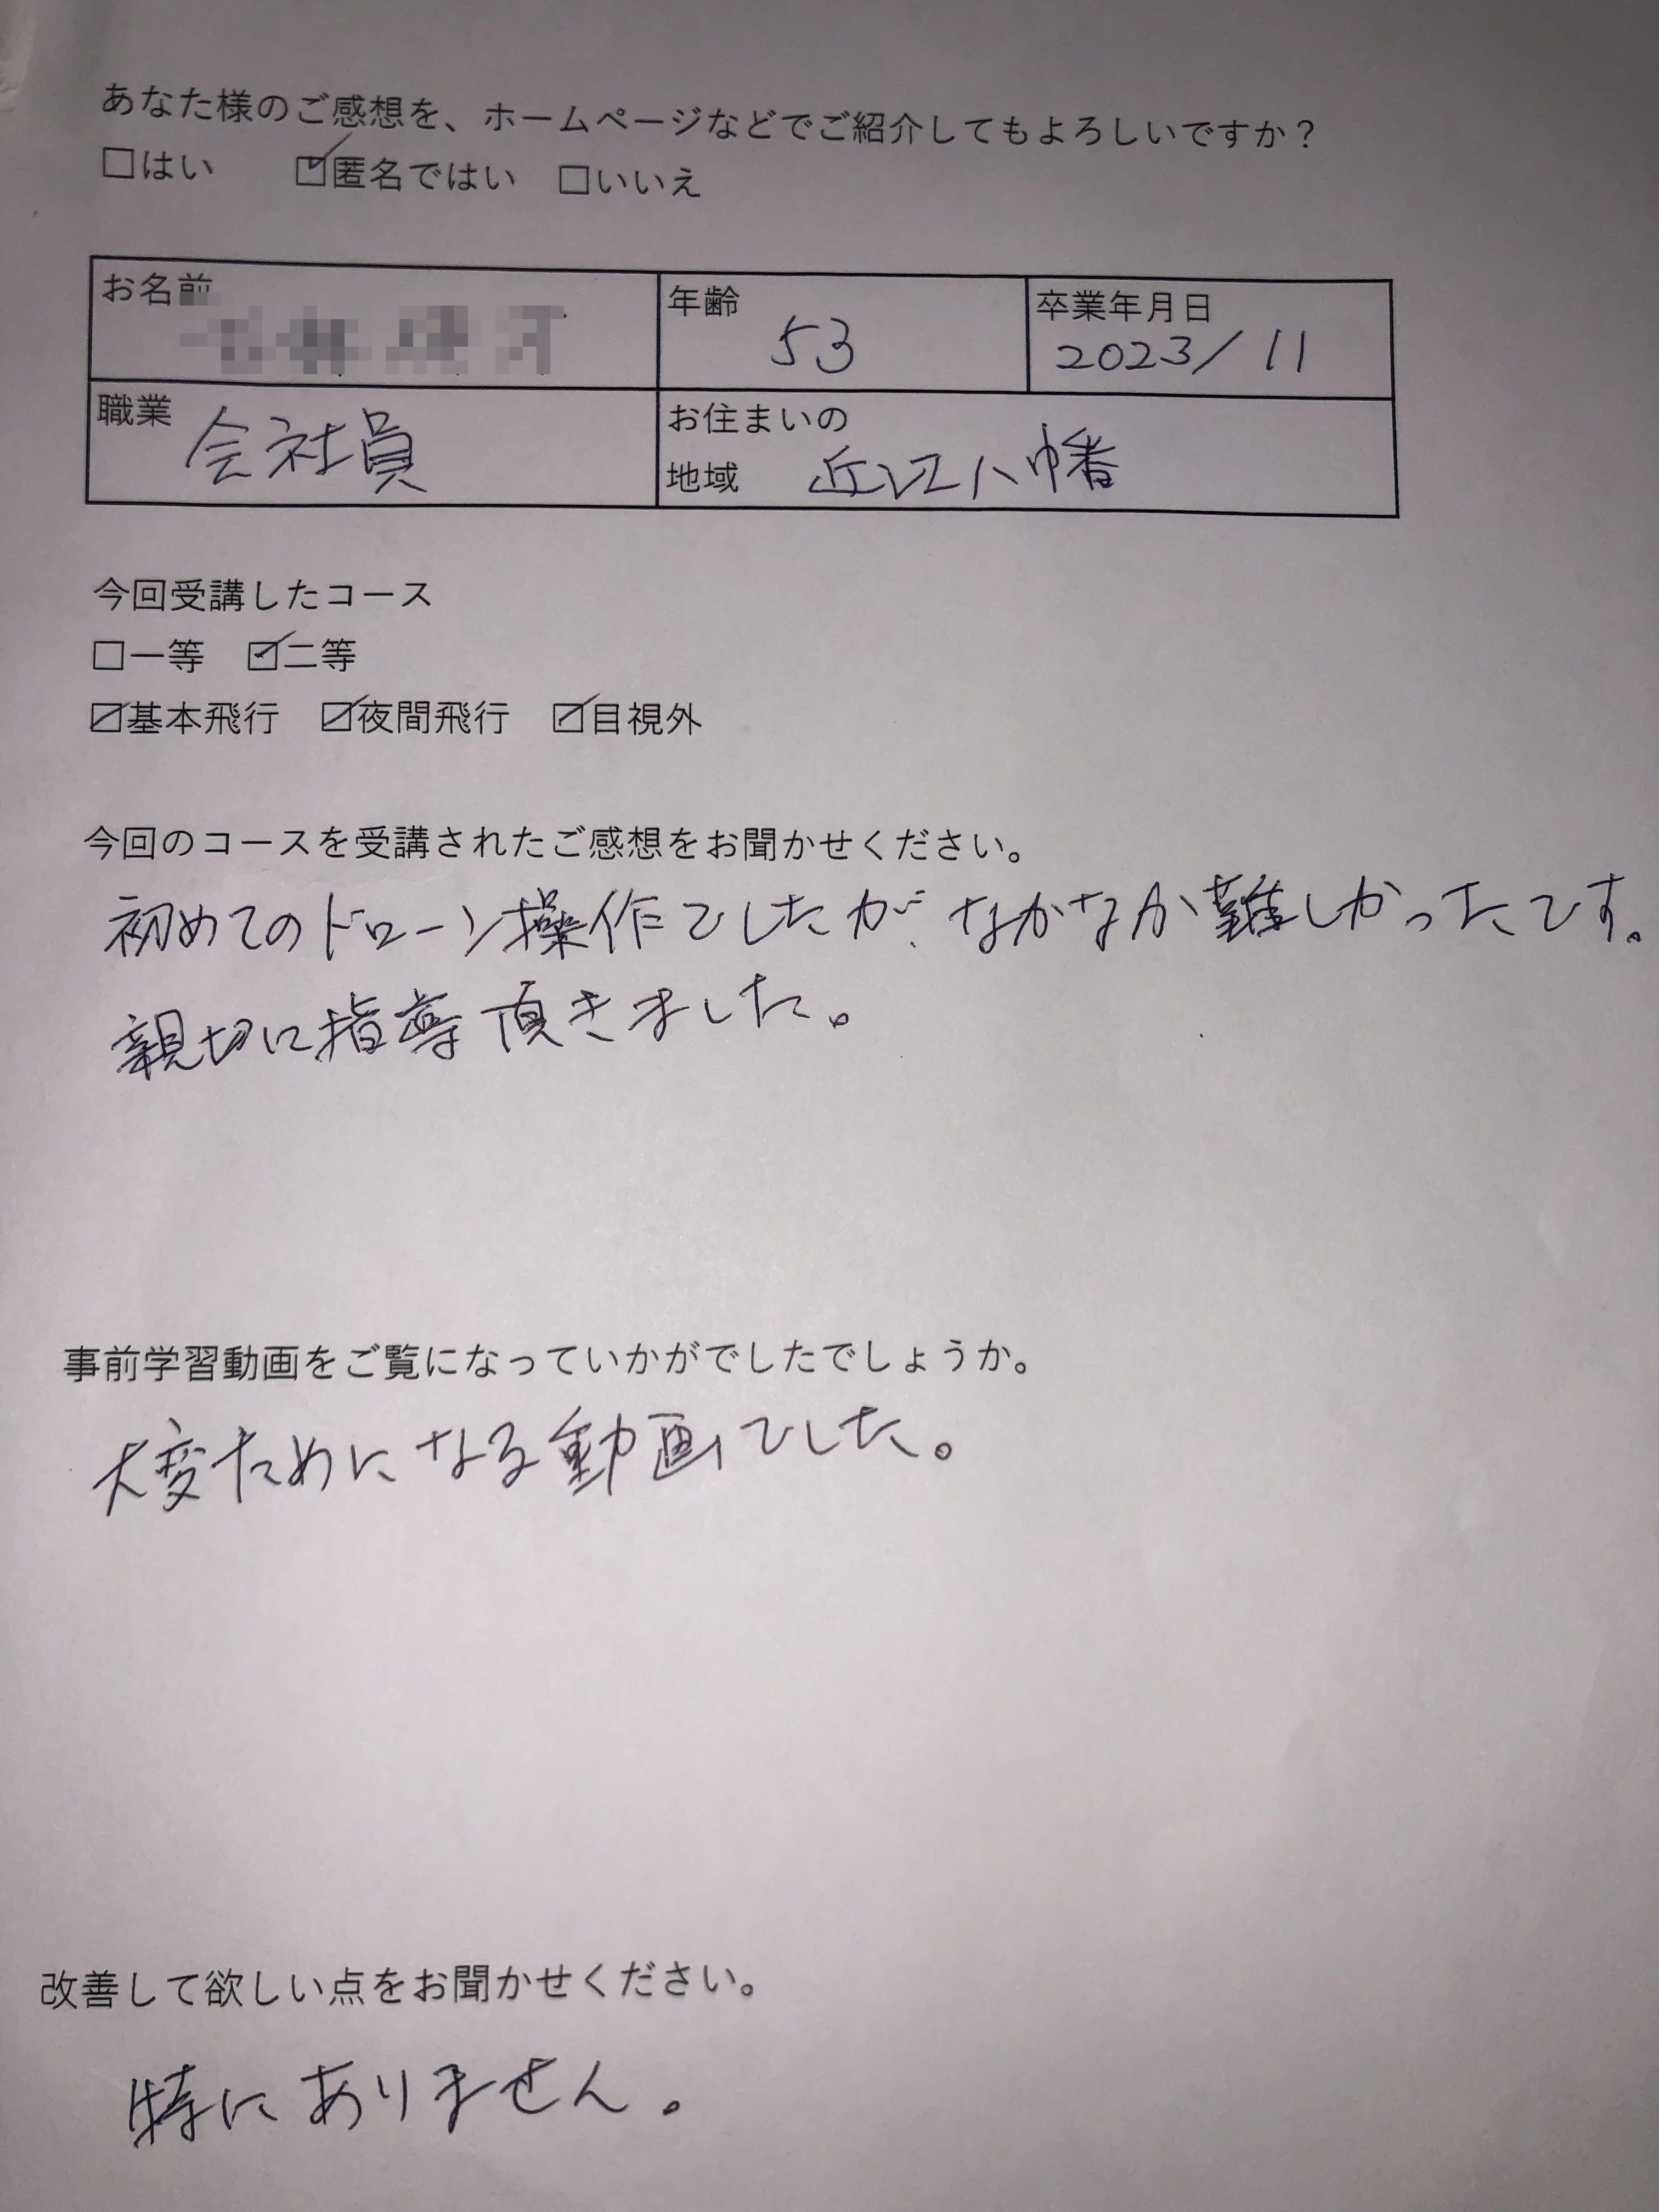 あなた様のご感想を、ホームページなどでご紹介してもよろしいですか？
□はい ☑匿名ではい □いいえ
お名前
年齢 53
卒業年月日 2023/11
職業 会社員
お住まいの
地域 近江八幡
今回受講したコース
□一等 ☑二等
☑基本飛行 ☑夜間飛行 ☑目視外
今回のコースを受講されたご感想をお聞かせください。
初めてのドローン操作でしたが、なかなか難しかったです。
親切に指導頂きました。
事前学習動画をご覧になっていかがでしたでしょうか。
大変ためになる動画でした。
改善して欲しい点をお聞かせください。
特にありません。